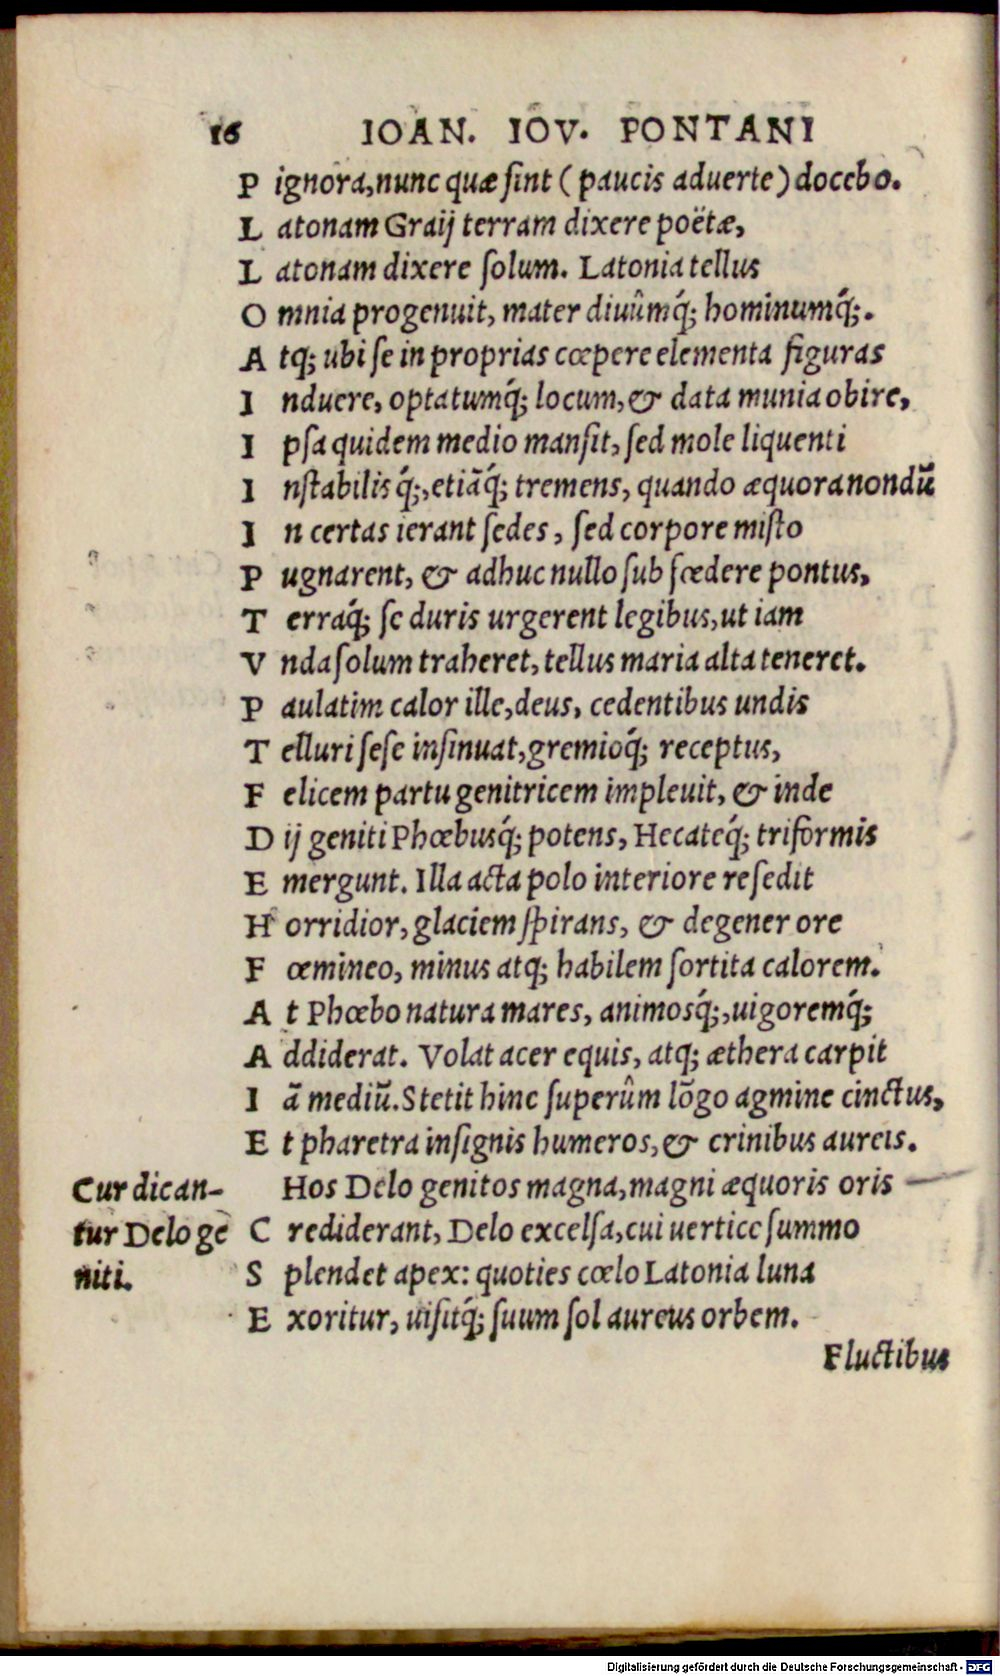 16 IOAN. IOV. PONTANI
P ignora, nunc quæ ſint ( paucis aduerte ) docebo.
L atonam Graij terram dixere poëtæ,
L atonam dixere ſolum. Latonia tellus
O mnia progenuit, mater diuûmq́; hominumq́;.
A tq; ubi ſe in proprias cœpere elementa figuras
I nduere, optatumq́; locum, & data munia obire,
I pſa quidem medio manſit, ſed mole liquenti
I nſtabilis q́;, etiãq́; tremens, quando æquora nondũ
I n certas ierant ſedes, ſed corpore miſto
P ugnarent, & adhuc nullo ſub fœdere pontus,
T erraq́; ſe duris urgerent legibus, ut iam
V nda ſolum traheret, tellus maria alta teneret.
P aulatim calor ille, deus, cedentibus undis
T elluri ſeſe inſinuat, gremioq́; receptus,
F elicem partu genitricem impleuit, & inde
D ij geniti Phœbusq́; potens, Hecateq́; triformis
E mergunt. Illa acta polo interiore reſedit
H orridior, glaciem ſpirans, & degener ore
F œmineo, minus atq; habilem ſortita calorem.
A t Phœbo natura mares, animosq́;, uigoremq́;
A ddiderat. Volat acer equis, atq; æthera carpit
I ã mediũ. Stetit hinc ſuperûm lõgo agmine cinctus,
E t pharetra inſignis humeros, & crinibus aureis.
Cur dican-
tur Delo ge
niti.
Hos Delo genitos magna, magni æquoris oris
C rediderant, Delo excelſa, cui uertice ſummo
S plendet apex: quoties cœlo Latonia luna
E xoritur, uiſitq́; ſuum ſol aureus orbem.
Fluctibus
Digitalisierung gefördert durch die Deutsche Forschungsgemeinschaft - DFG